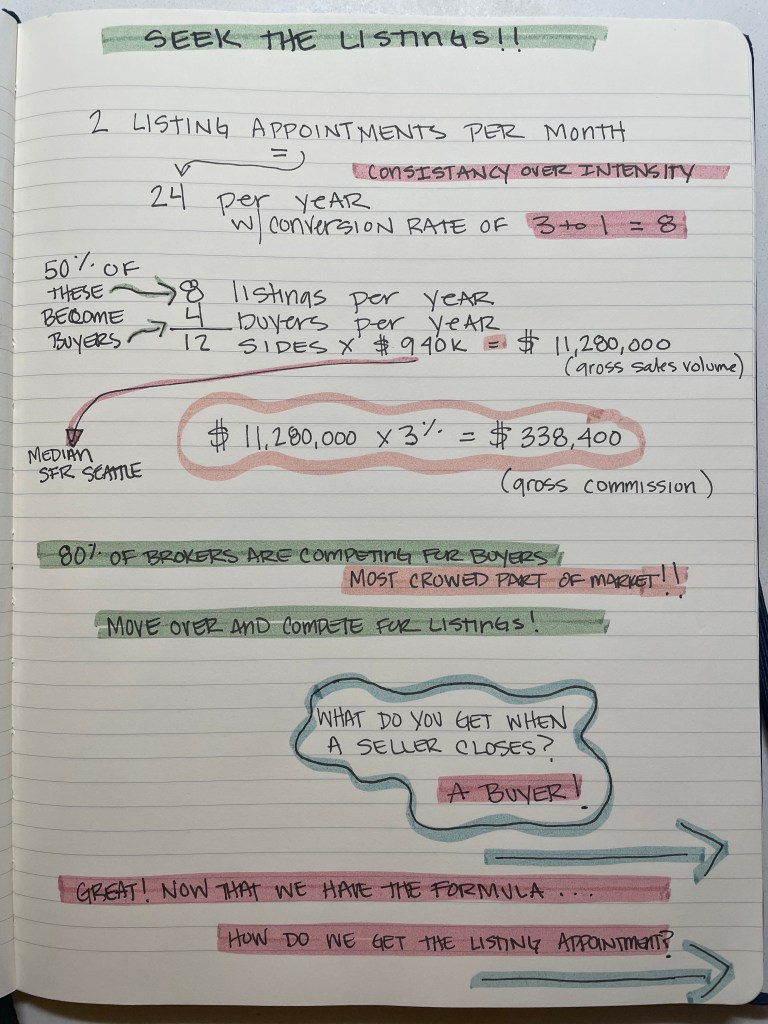 SEEK THE LISTINGS!!
2 LISTING APPOINTMENTS PER MONTH
=
CONSISTANCY OVER INTENSITY
24 per yeAR
w/ conversion RATE OF 3 to 1 = 8
50% OF
THESE
BECOME
BUYERS
8 listings per yeAR
4 buyers per yeAR
12 SIDES X $ 940K = $ 11,280,000
(gross sales volume)
MEDIAN
SFR SEATTLE
$ 11,280,000 x 3% = $ 338,400
(gross commission)
80% OF BROKERS ARE COMPETING FOR BUYERS
MOST CROWED PART OF MARKET!!
MOVE OVER AND COMPETE FOR LISTINGS!
WHAT DO YOU GET WHEN
A SELLER CLOSES?
A BUYER!
GREAT! NOW THAT WE HAVE THE FORMULA ...
HOW DO WE GET THE LISTING APPOINTMENT?